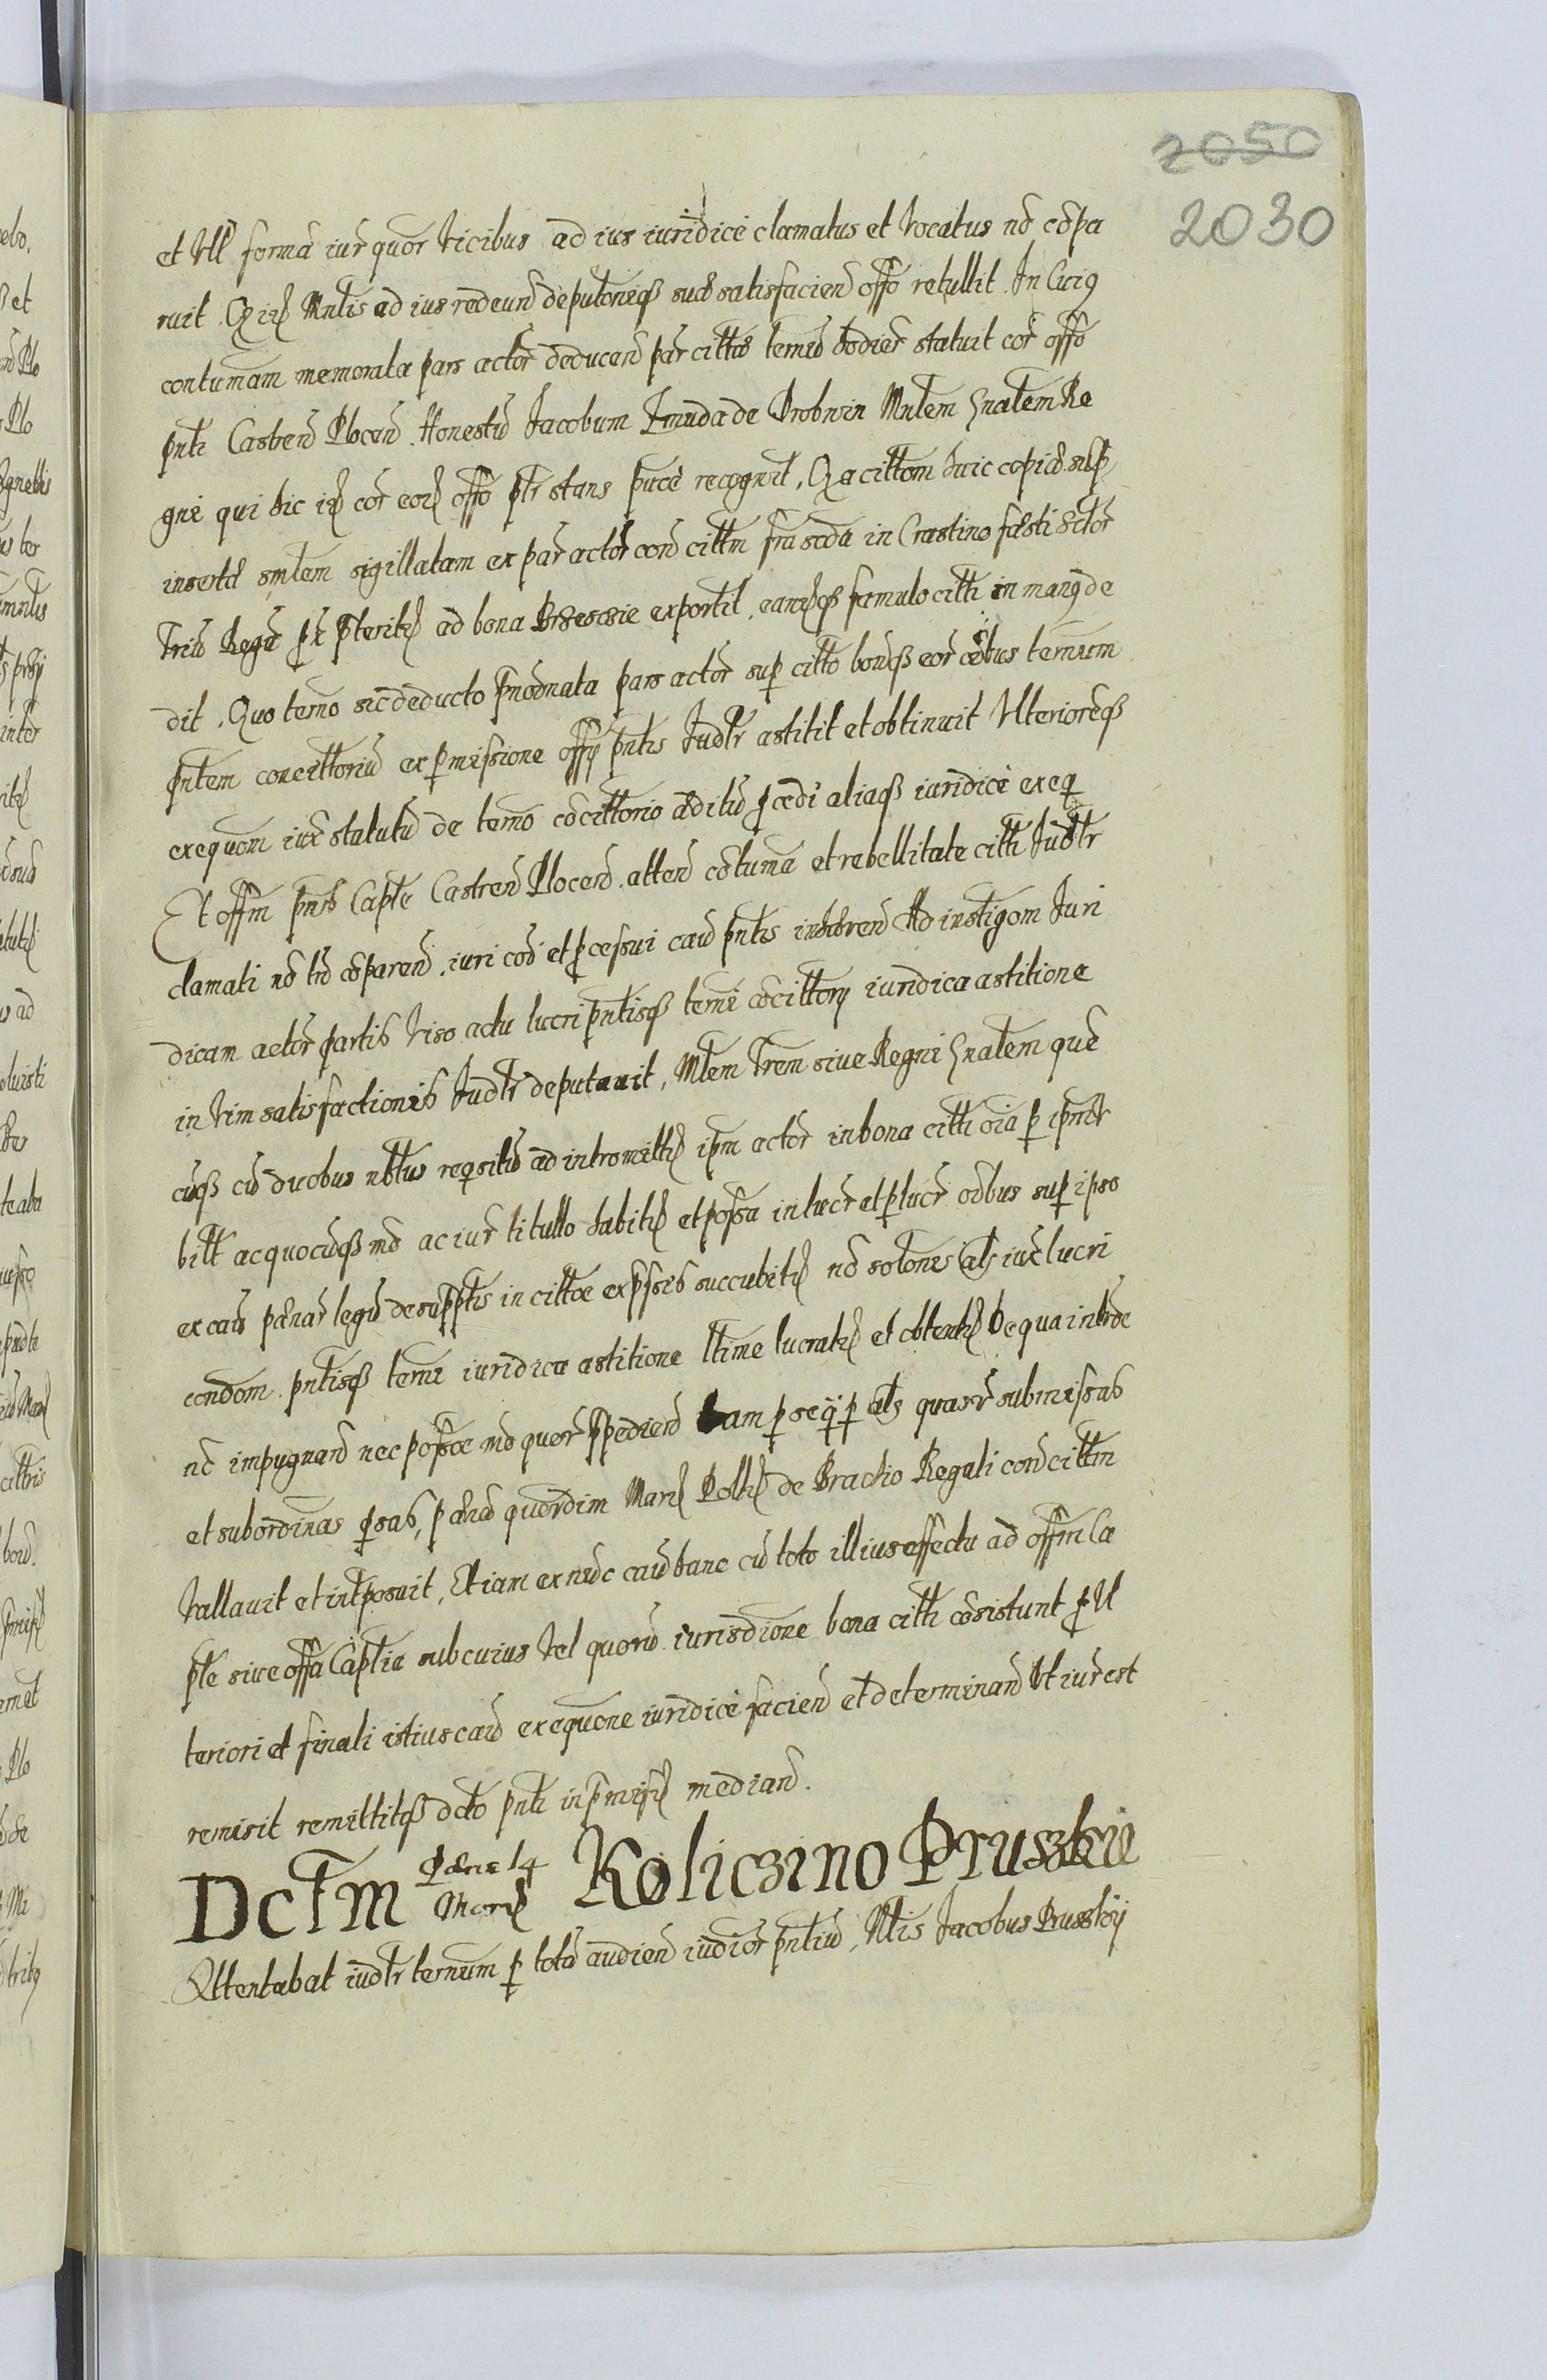 2050
2030
et Vlt formā iur quor vicibus ad ius iuridicè clamatus et vocatus nō cōpa
ruit. Mntis ad ius redeun̄ deputoniq suā satisfacien̄ offo retullit. In cuig
contumām memorata pars actōr deducen̄ par citta termū hodier statuit cor offo
pnti Castren̄ Plocen̄. Honestū Jacobum de Drobnin Mntem Gnalem Re
gni qui hic cor offo ptr stans recognvit, citom huic copiā
insertā smlem sigillatam ex par actōr con̄ cittm in Crastino fæsti Sctōr
Triū Regū ad bona exportit, famulo citti in mang de
dit. Quo termo sic deducto pnoōnata pars actōr sup citto termum
pntem concittoriū ex pmissione offi pntis Judtr astitit et obtinuit Vlterioreq
exequom iure statutū de termo cōcittorio æditū pcedi aliaq iuridicè exeq
Et offm pns Capte Castren̄ Plocen̄. atten̄ cōtumā et rebellitate citti Judtr
clamati nō tn̄ cōparen̄. iuri cōi et pcessui cau pntis inhæren̄ Ad instigom Juri
dicam actōr partis viso actu lucri pntisq termi cōcittorij iuridica astitione
in vim satisfactionis Judtr deputauit, Mtem Trem siue Regni Gnalem que
cūq cū duobus nbtus reqsitū ad intromitt ipm actōr in bona citti oīa p ipm
bilt ac quocūq mō ac iur titullo habit et possa in lucr et p lucr oībus sup ipso
ex cau pænar legū desuptis in cittoe expssis succubit nō als iure lucri
condom pntisq termi iuridica astitione ltime lucrat et obtent De qua intrōe
nō impugnan̄ nec possōe mō quor ppedien̄ p als submissas
et subordinas psas, pænā Mar Polk de Brachio Regali con̄ cittm
Vallauit et intposuit, Et iam ex nūc cau hanc cū toto illius effectu ad offm Ca
pte siue offa Captia sub cuius vel quorū iurisdione bona citti cōsistunt p Vl
teriori et finali istius cau exequone iuridicè facien̄ et determinan̄ Vt iur est
remisit remittitq dcto pnti in pmiss median̄.
Dctm Pæna 14 Marc Koliczino Pruszkii
Attentabat iudtr termum p totā audien̄ iudior pntiū, Ntis Jacobus Prusskij